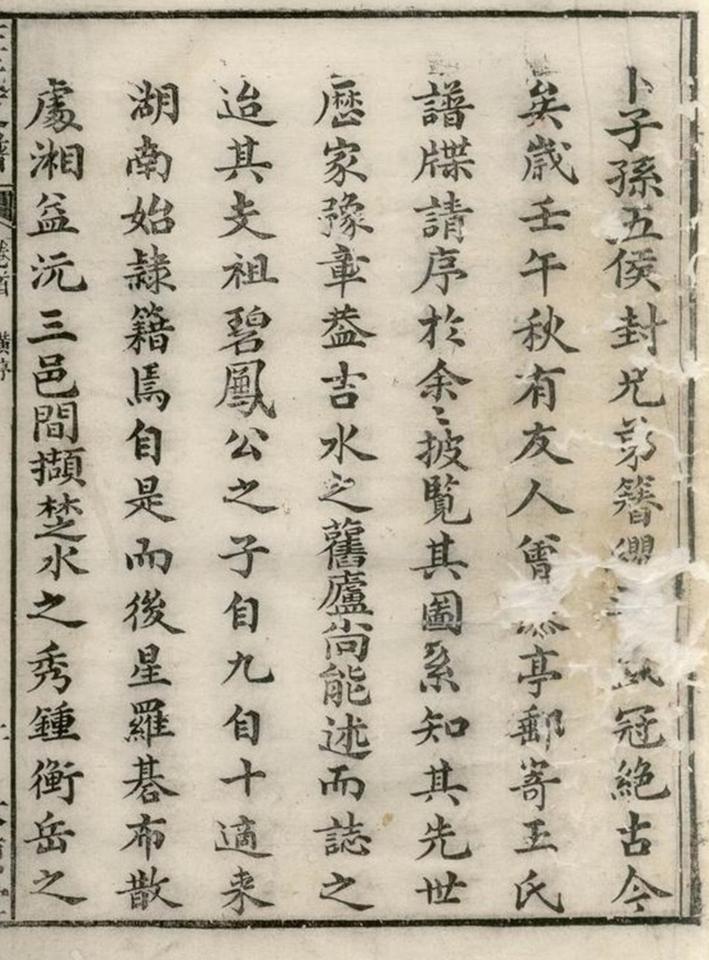 卜子孫五侯封兄弟簪纓冠絕古今
矣歲壬午秋有友人曾亭郵寄王氏
譜牒請序於余〻披覧其圖系知其先世
歴家豫章葢吉水之舊廬尚能述而誌之
迨其支祖碧鳳公之子自九自十適来
湖南始隷籍焉自是而後星羅碁布散
處湘益沅三邑間擷楚水之秀鍾衡岳之